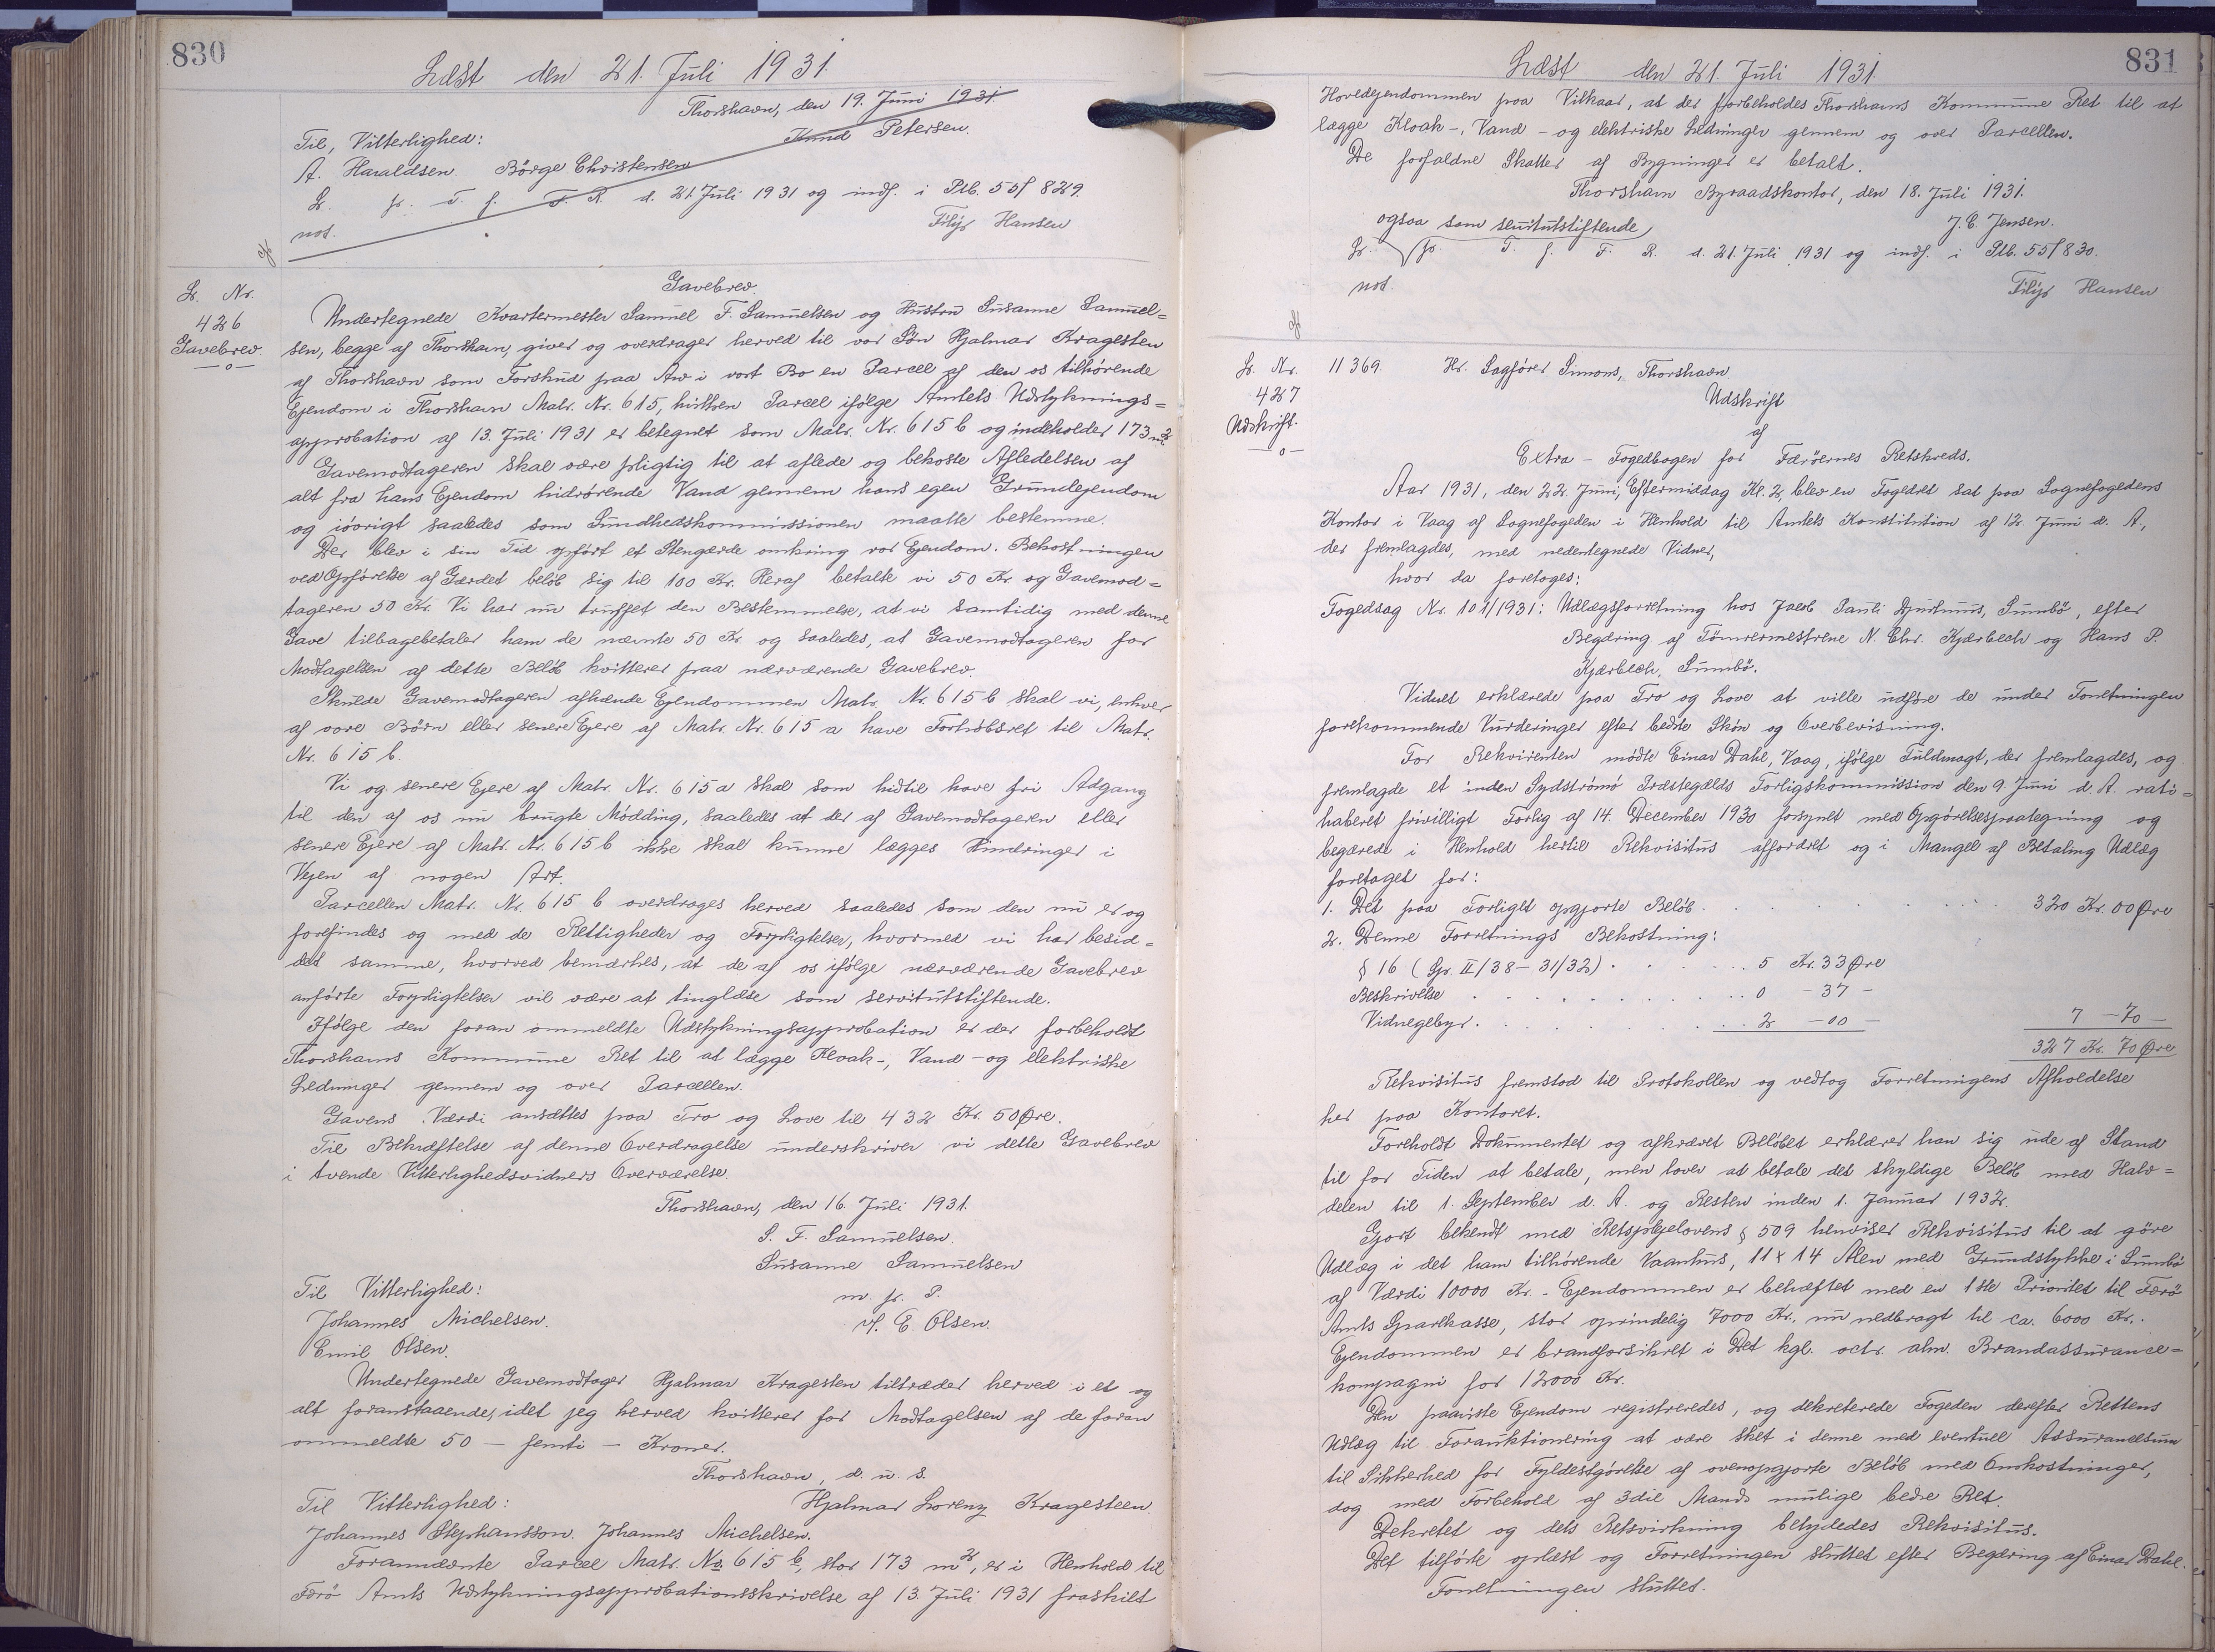 830
Læst den 21. Juli 1931.
Thorshavn, den 19. Juni 1931.
Til Vitterlighed:
Knud Petersen.
A. Haraldsen. Börge Christensen
L. fr. T. f. F. R. d. 21. Juli 1931 og indf. i Ptb. 55f 829.
not.
Filip Hansen
L. Nr.
426
Gavebrev.
—o—
Gavebrev.
Undertegnede Kvartermester Samuel F. Samuelsen og Hustru Susanne Samuel=
sen, begge af Thorshavn, giver og overdrager herved til vor Søn Hjalmar Kragesten
af Thorshavn som Forskud paa Arv i vort Bo en Parcel af den os tilhørende
Ejendom i Thorshavn Matr. Nr. 615, hvilken Parcel ifølge Amtets Udstyknings=
approbation af 13. Juli 1931 er betegnet som Matr. Nr. 615 b og indeholder 173 m².
Gavemodtageren skal være pligtig til at aflede og bekoste Afledelsen af
alt fra hans Ejendom hidrørende Vand gennem hans egen Grundejendom
og iøvrigt saaledes som Sundhedskommissionen maatte bestemme.
Der blev i sin Tid opført et Stengærde omkring vor Ejendom. Bekostningen
ved Opførelse af Gærdet beløb sig til 100 Kr. Heraf betalte vi 50 Kr og Gavemod=
tageren 50 Kr. Vi har nu truffet den Bestemmelse, at vi samtidig med denne
Gave tilbagebetaler ham de nævnte 50 Kr og saaledes, at Gavemodtageren for
Modtagelsen af dette Beløb kvitterer paa nærværende Gavebrev.
Skulde Gavemodtageren afhænde Ejendommen Matr. Nr. 615 b skal vi, enhver
af vore Børn eller senere Ejere af Matr. Nr. 615 a have Forkøbsret til Matr.
Nr. 615 b.
Vi og senere Ejere af Matr. Nr. 615 a skal som hidtil have fri Adgang
til den af os nu brugte Mødding, saaledes at der af Gavemodtageren eller
senere Ejere af Matr. Nr. 615 b ikke skal kunne lægges Hindringer i
Vejen af nogen Art.
Parcellen Matr. Nr. 615 b overdrages herved saaledes som den nu er og
forefindes og med de Rettigheder og Forpligtelser, hvormed vi har besid=
det samme, hvorved bemærkes, at de af os ifølge nærværende Gavebrev
anførte Forpligtelser vil være at tinglæse som servitutstiftende.
Ifølge den foran ommeldte Udstykningsapprobation er der forbeholdt
Thorshavns Kommune Ret til at lægge Kloak-, Vand- og elektriske
Ledninger gennem og over Parcellen.
Gavens Værdi ansættes paa Tro og Love til 432 Kr. 50 Øre.
Til Bekræftelse af denne Overdragelse underskriver vi dette Gavebrev
i tvende Vitterlighedsvidners Overværelse.
Thorshavn, den 16. Juli 1931.
S. F. Samuelsen.
Susanne Samuelsen
Til Vitterlighed:
m. p. P.
Johannes Michelsen.
H. E. Olsen.
Emil Olsen.
Undertegnede Gavemodtager Hjalmar Kragesten tiltræder herved i et og
alt foranstaaende, idet jeg herved kvitterer for Modtagelsen af de foran
ommeldte 50 — femti — Kroner.
Thorshavn, d. u. s.
Til Vitterlighed:
Hjalmar Lorenz Kragesteen.
Johannes Stephansson. Johannes Michelsen.
Forannævnte Parcel Matr. No. 615 b, stor 173 m², er i Henhold til
Færö Amts Udstykningsapprobationsskrivelse af 13. Juli 1931 fraskilt
831
Læst den 21. Juli 1931.
Hovedejendommen paa Vilkaar, at der forbeholdes Thorshavns Kommune Ret til at
lægge Kloak-, Vand- og elektriske Ledninger gennem og over Parcellen.
De forfaldne Skatter af Bygninger er betalt.
Thorshavn Byraadskontor, den 18. Juli 1931.
ogsaa som servitutstiftende
J. C. Jensen.
L. fr. T. f. F. R. d. 21. Juli 1931 og indf. i Ptb. 55f 830.
not.
Filip Hansen
L. Nr.
427
Udskrift.
—o—
11369. Hr. Sagfører Simons, Thorshavn
Udskrift
af
Extra-Fogedbogen for Færøernes Retskreds.
Aar 1931, den 22. Juni, Eftermiddag Kl. 2, blev en Fogedret sat paa Sognefogedens
Kontor i Vaag af Sognefogeden i Henhold til Amtets Konstitution af 12. Juni d. A.,
der fremlagdes, med nedentegnede Vidner,
hvor da foretoges:
Fogedsag Nr. 101/1931: Udlægsforretning hos Jacob Pauli Djurhuus, Sumbø, efter
Begæring af Tömrermestrene N. Chr. Kjærbech og Hans P.
Kjærbech, Sumbø.
Vidnet erklærede paa Tro og Love at ville udføre de under Forretningen
forekommende Vurderinger efter bedste Skøn og Overbevisning.
For Rekvirenten mødte Einar Dahl, Vaag, ifølge Fuldmagt, der fremlagdes, og
fremlagde et inden Sydstrømø Præstegælds Forligskommission den 9. Juni d. A. rati=
haberet frivilligt Forlig af 14. December 1930 forsynet med Opgørelsespaategning og
begærede i Henhold hertil Rekvisitus affordret og i Mangel af Betaling Udlæg
foretaget for:
1. Det paa Forliget opgjorte Beløb . . . . . 320 Kr. 00 Øre
2. Denne Forretnings Bekostning:
§ 16 (Gr. II/38 - 31/32) . . . . . 5 Kr. 33 Øre
Beskrivelse . . . . . 0 - 37 -
Vidnegebyr . . . . . 2 - 00 - 7 - 70 -
327 Kr. 70 Øre
Rekvisitus fremstod til Protokollen og vedtog Forretningens Afholdelse
her paa Kontoret.
Foreholdt Dokumentet og afkrævet Beløbet erklærer han sig ude af Stand
til for Tiden at betale, men lover at betale det skyldige Beløb med Halv=
delen til 1. September d. A. og Resten inden 1. Januar 1932.
Gjort bekendt med Retsplejelovens § 509 henviser Rekvisitus til at göre
Udlæg i det ham tilhørende Vaanhus, 11 x 14 Alen med Grundstykke i Sumbø
af Værdi 10000 Kr. - Ejendommen er behæftet med en 1ste Prioritet til Færö
Amts Sparekasse, stor oprindelig 7000 Kr., nu nedbragt til ca. 6000 Kr..
Ejendommen er brandforsikret i Det kgl. octr. alm. Brandassurance=
kompagni for 12000 Kr.
Den paaviste Ejendom registreredes, og dekreterede Fogeden derefter Rettens
Udlæg til Forauktionering at være sket i denne med eventuel Assurancesum
til Sikkerhed for Fyldestgørelse af ovenopgjorte Beløb med Omkostninger,
dog med Forbehold af 3die Mands mulige bedre Ret.
Dekretet og dets Retsvirkning betydedes Rekvisitus.
Det tilførte oplæst og Forretningen sluttet efter Begæring af Einar Dahl.
Forretningen sluttet.